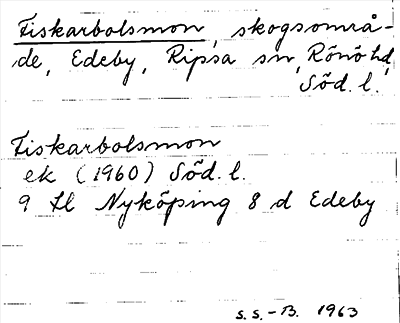 Fiskarbolsmon, skogsområ-
de, Edeby, Ripsa sn, Rönö hd,
Söd. l.
Fiskarbolsmon
ek (1960) Söd. l.
9 Nyköping 8 d Edeby
S.S.-B. 1963